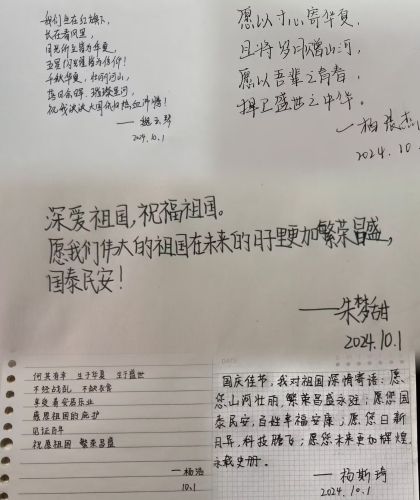 我们生在红旗下,
长在春风里,
目光所至皆为华夏,
五星闪耀皆为信仰!
千秋华夏,壮丽河山,
落日余晖、璀璨星河,
祝我泱泱大国依旧热血沸腾!
2024.10.1
愿以寸心寄华夏,
且将岁月赠山河,
愿以吾辈之青春,
捍卫盛世之中华。
—杨张杰
2024.10.1
深爱祖国,祝福祖国。
愿我们伟大的祖国在未来的日子里更加繁荣昌盛,
国泰民安!
——朱梦甜
2024.10.1
何其有幸 生于华夏 生于盛世
不经战乱 不缺衣食
享受着安居乐业
感恩祖国的庇护
见证百年
祝愿祖国 繁荣昌盛
—杨浩
10.1
DATE
国庆佳节,我对祖国深情寄语:愿
您山河壮丽,繁荣昌盛永驻;愿您国
泰民安,百姓幸福安康;愿您日新
月异,科技腾飞;愿您未来更加辉煌,
永载史册。
—杨斯琦
2024.10.1